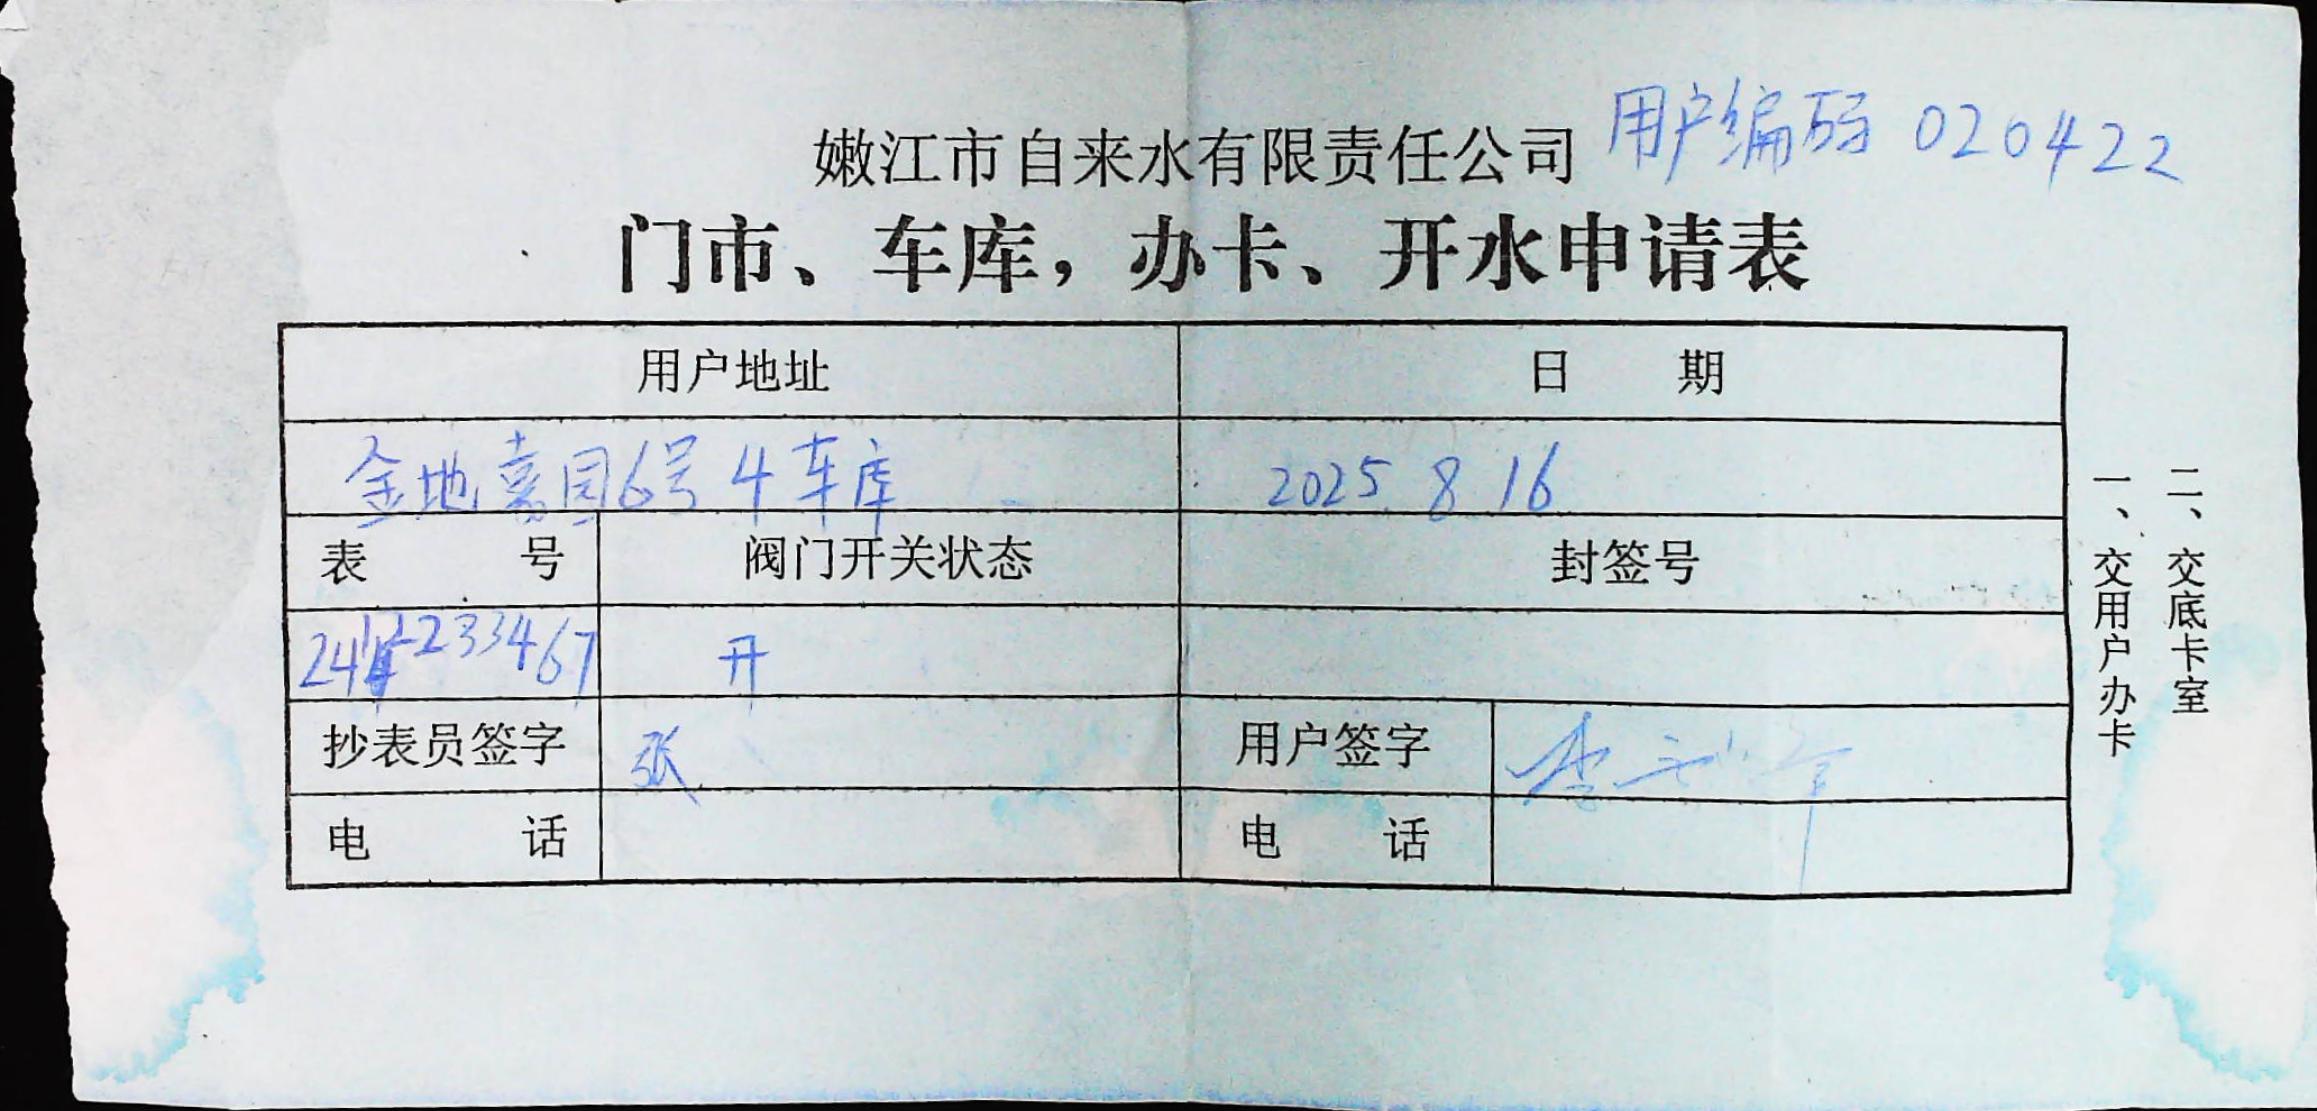 嫩江市自来水有限责任公司 用户编码 020422
门市、车库，办卡、开水申请表
用户地址 日 期
金地嘉园6号4车库 2025.8.16
表 号 阀门开关状态 封签号
开
抄表员签字 张 用户签字 李
电 话 电 话
一、交用户办卡
二、交底卡室